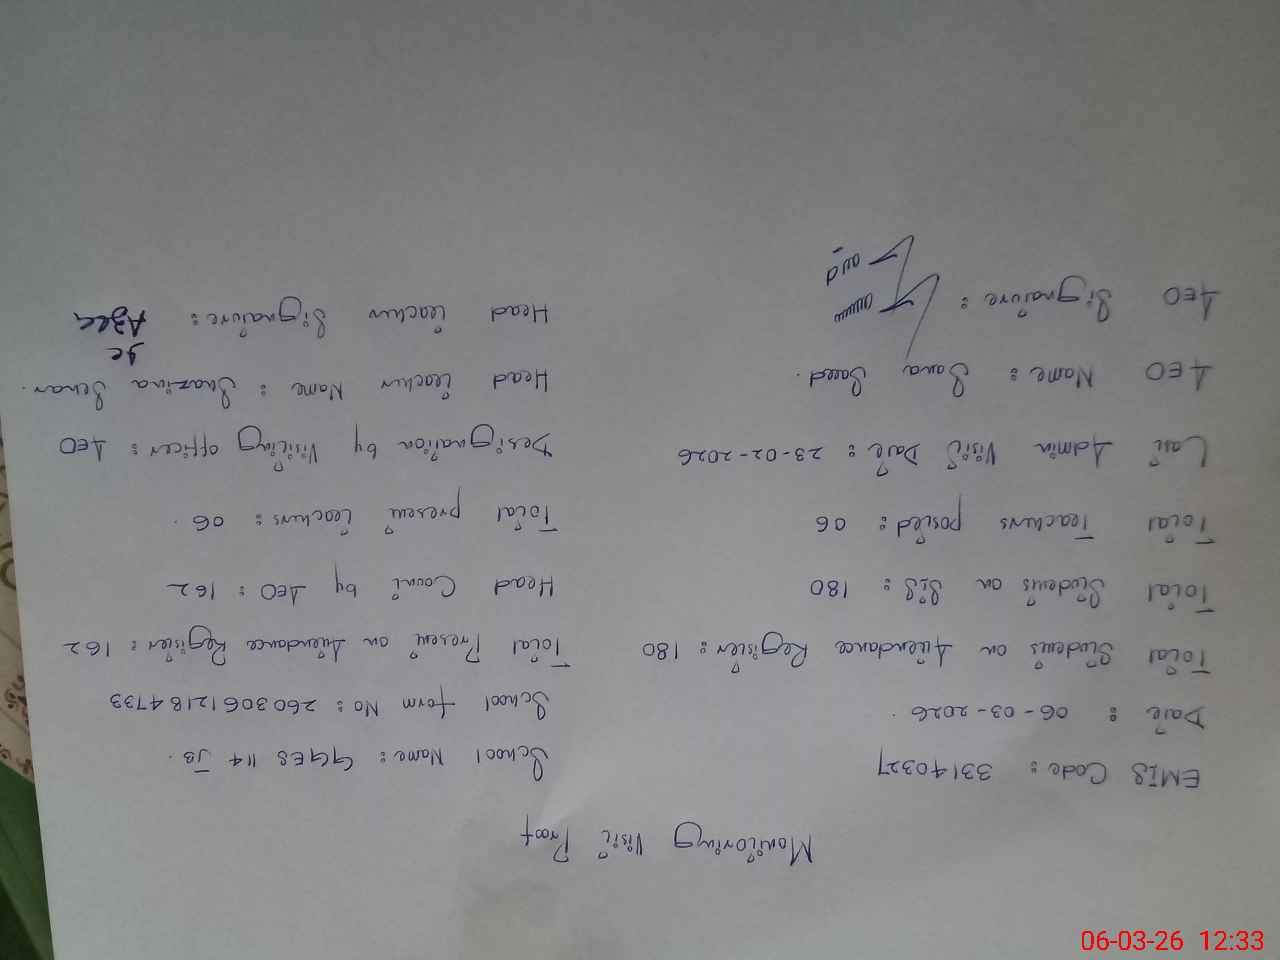 Monitoring Visit Proof
EMIS Code: 33140327 School Name: GGES 114 JB.
Date: 06-03-2026. School form No: 26030612184733
Total Students on Attendance Register: 180 Total Present on Attendance Register: 162
Total Students on SIS: 180 Head Count by AEO: 162
Total Teachers posted: 06 Total present teachers: 06.
Last Admin Visit Date: 23-02-2026 Designation by Visiting officer: AEO
AEO Name: Sana Saeed. Head teacher Name: Shazina
AEO Signature: Head teacher Signature:
06-03-26 12:33